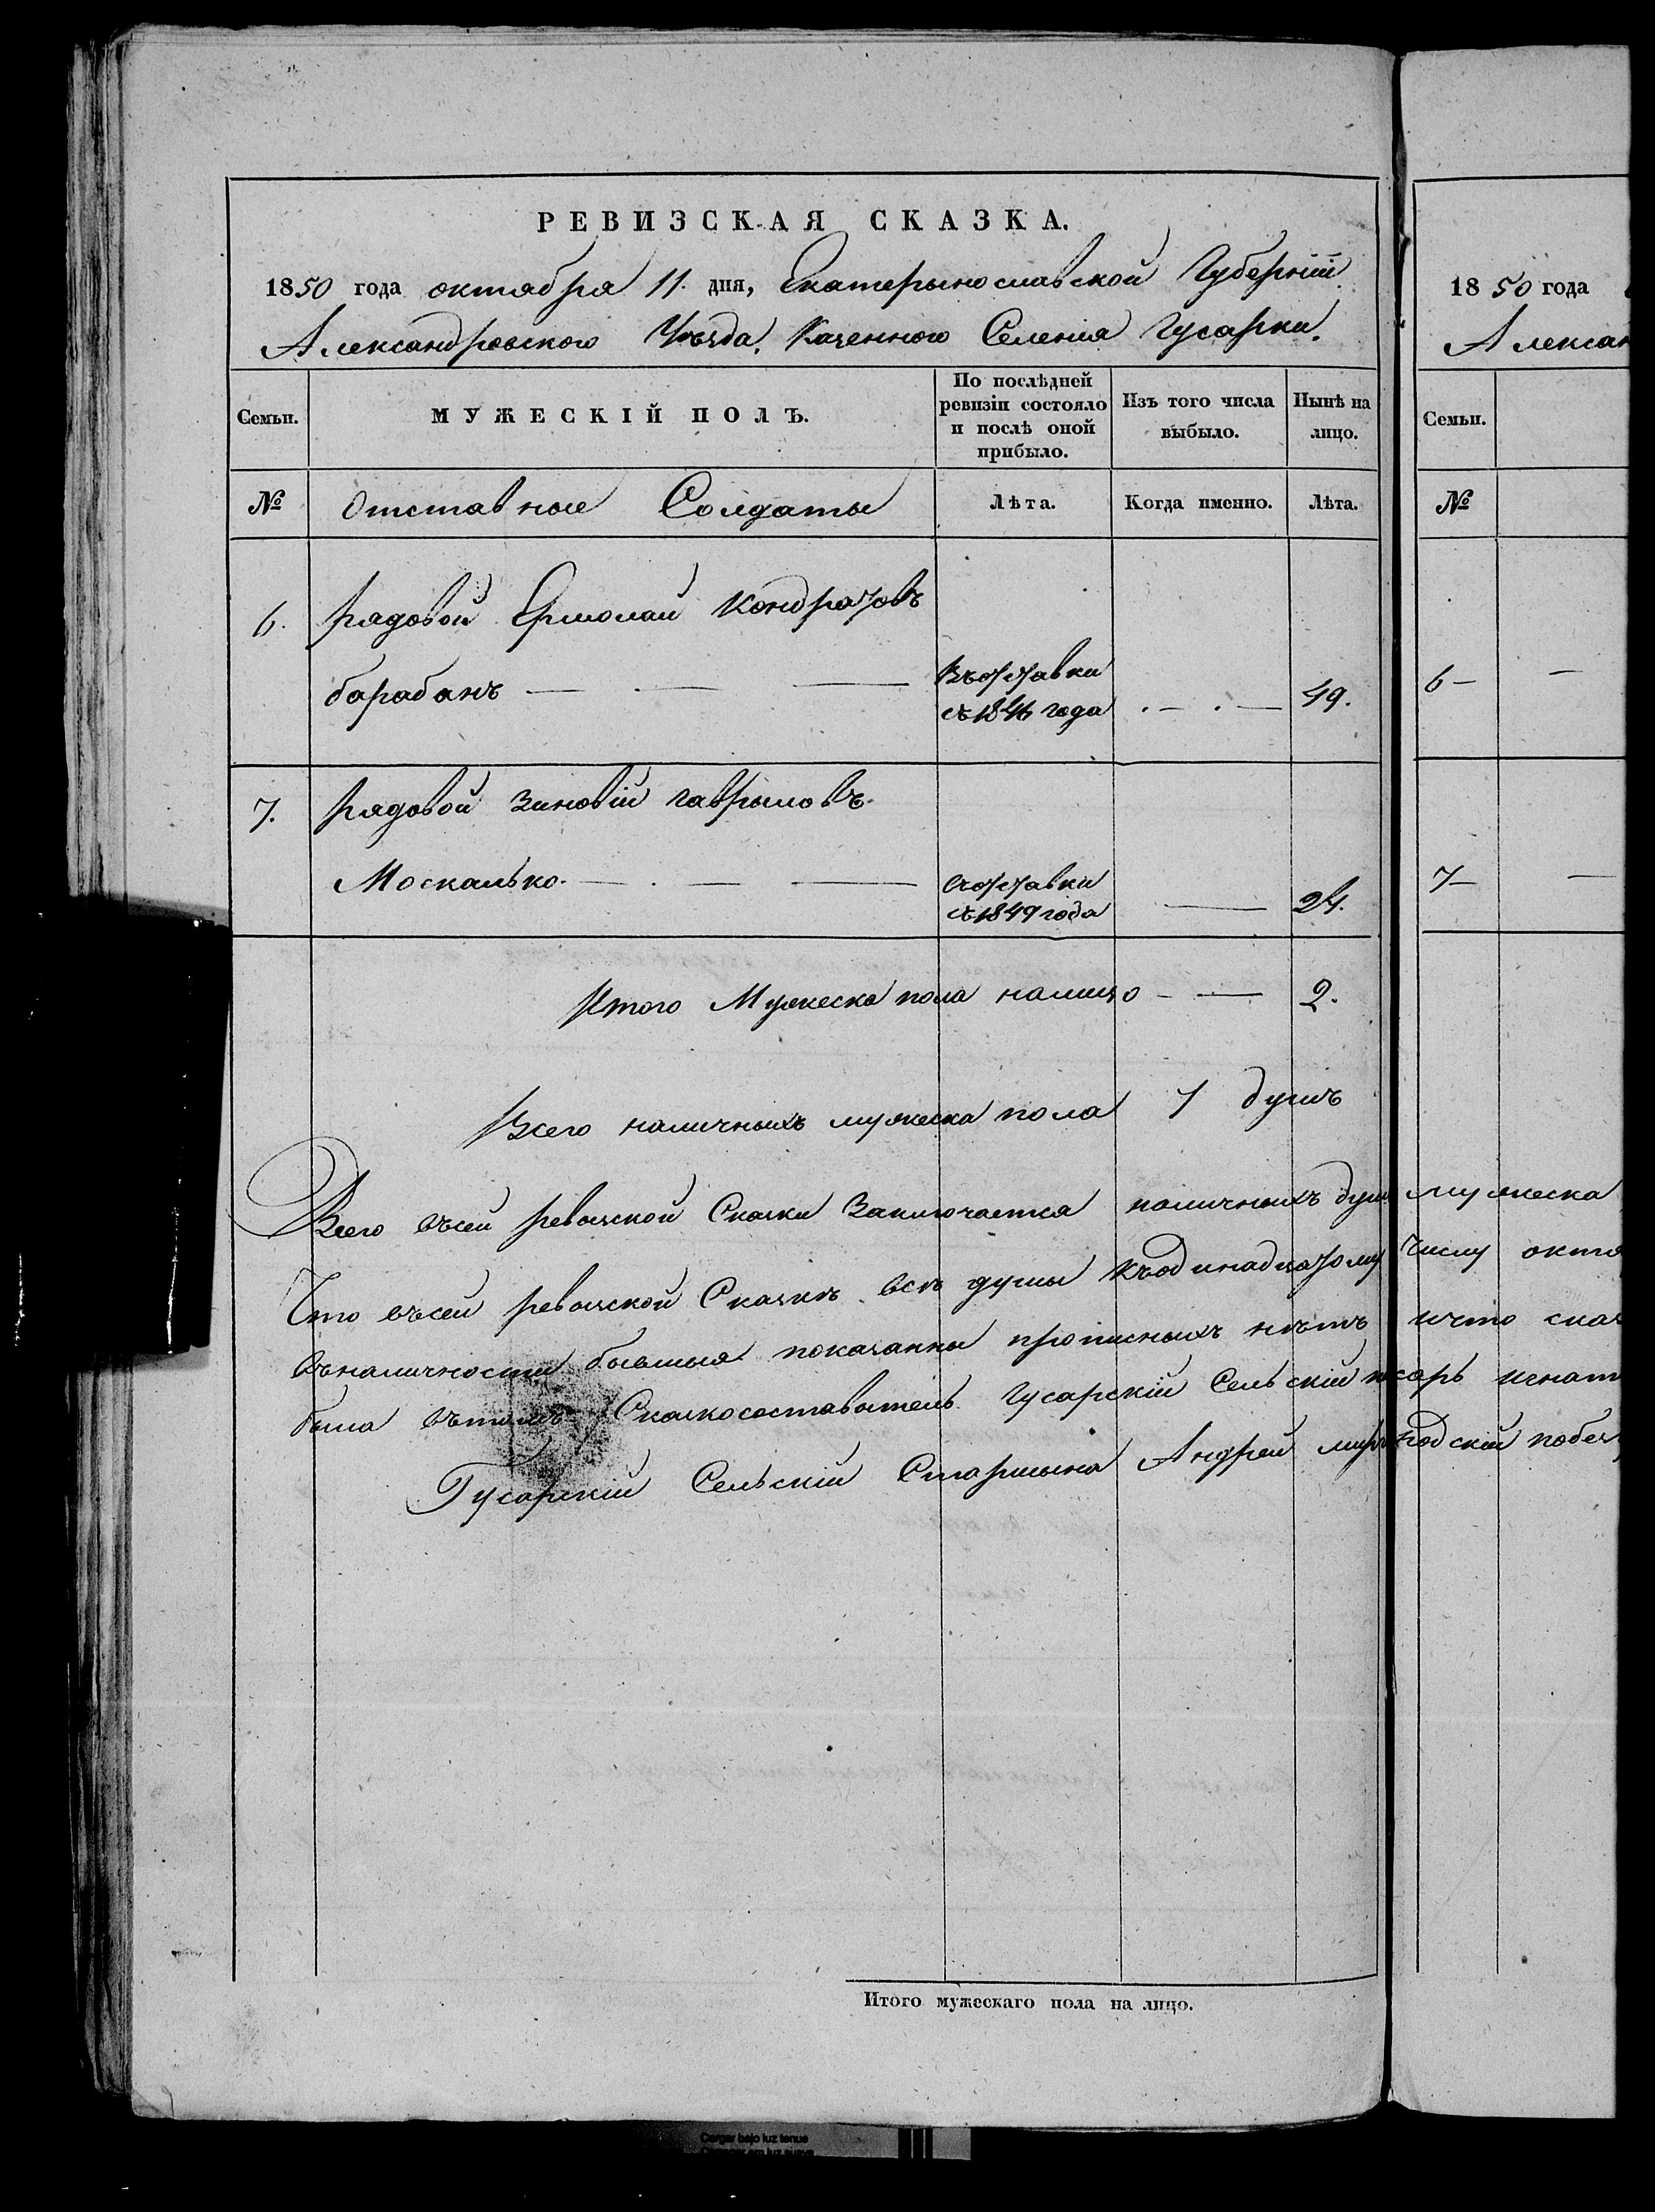 РЕВИЗСКАЯ СКАЗКА.
1850 года октября 11. дня, Екатерынославской Губерніи
Александровского Уѣзда, Казенного Селенія Гусарки.
Семьи.
МУЖЕСКІЙ ПОЛЪ.
По послѣдней ревизіи состояло и послѣ оной прибыло.
Изъ того числа выбыло.
Нынѣ на лицо.
№
Отставные Солдаты
Лѣта.
Когда именно.
Лѣта.
6. рядовой Ермолай Кондратовъ
барабанъ — — —
Въотставки съ 1846 года
49.
7. рядовой Зиновій гаврыловъ
Москалько. — — —
съ 1849 года
24.
Итого Мужеска пола налицо — — 2.
Всего наличныхъ мужеска пола 7 душъ
Всего въсей ревызской Сказки Заключается наличныхъ душ мужеска
Что въсей ревызской Сказкѣ всѣ душы Къодинадцатому Числу октя
въналичности бывшыя показанны прописныхъ нѣтъ ичто сказ
была Сказкосоставытель Гусарскій Сельскій писарь игнат
Гусарскій Сельскій Старшына Андрей
Итого мужескаго пола на лицо.
1850 года
Алексан
Семьи.
№
6 — —
7 — —
Cargar bajo luz tenue